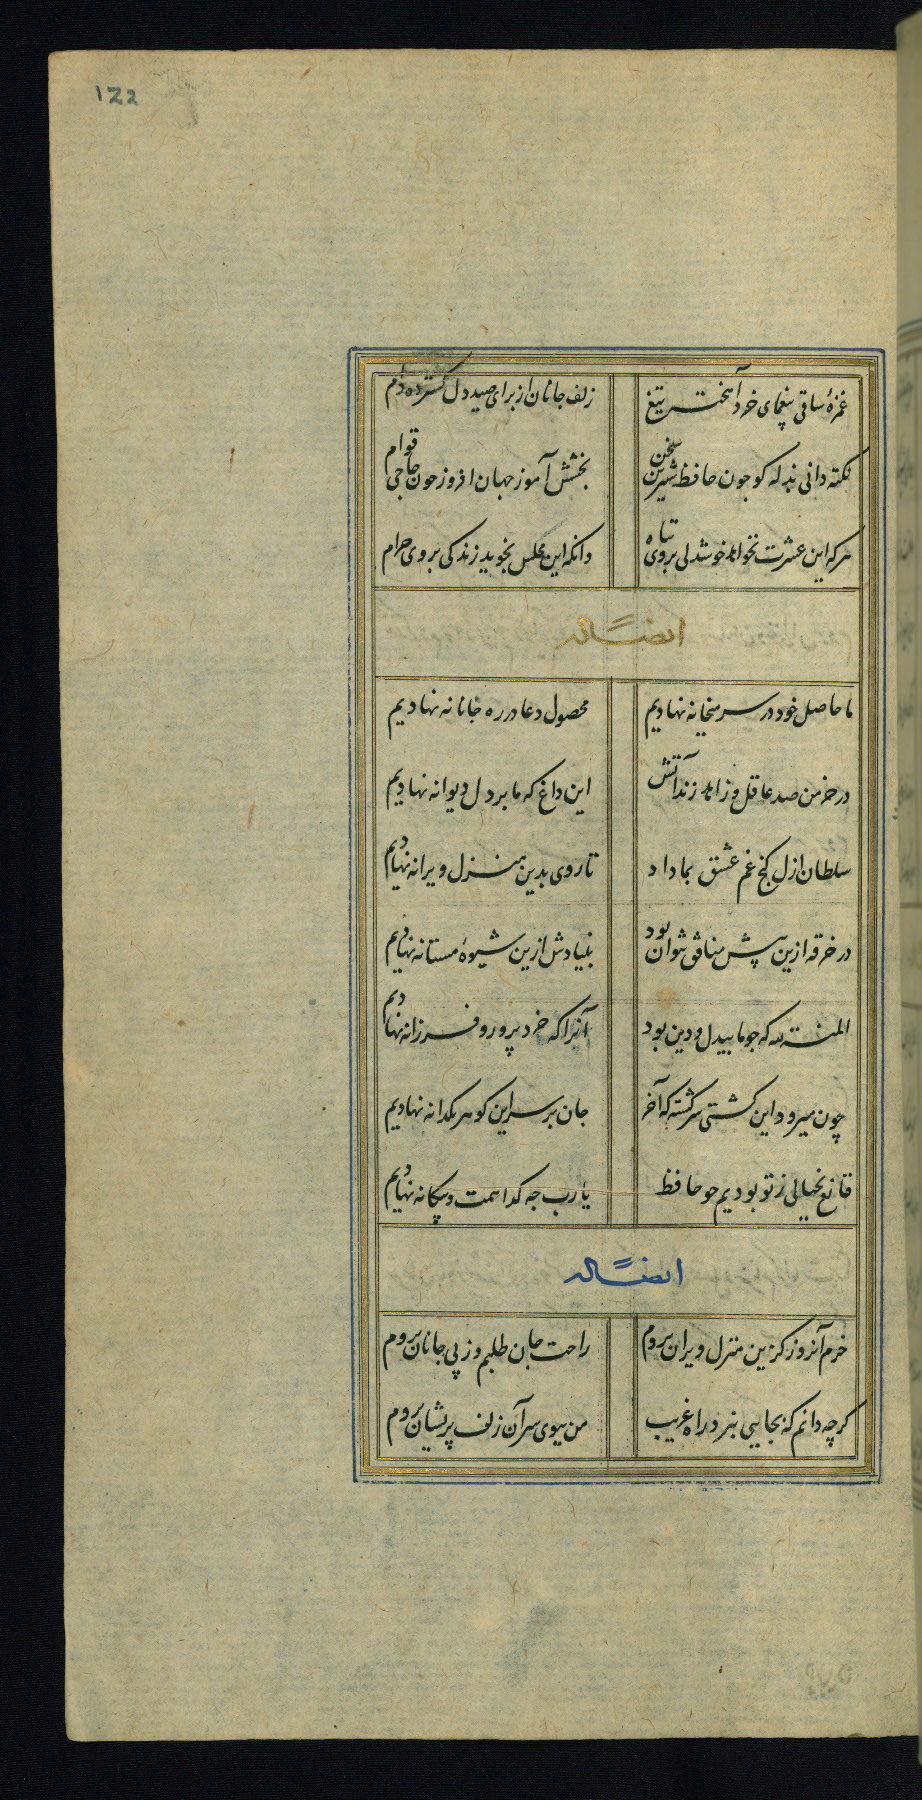 122
غمزهٔ ساقی بیغمای خرد آهخته تیغ زلف جانان از برای صید دل گسترده دام
نکته دانی بذله کو جون حافظ شیرین سخن بخشش آموز جهان افروز جون حاجی قوام
هر که این عشرت نخواهد خوشدلی بروی تباه وانکه این مجلس بجوید زندکی بروی حرام
ایضاً له
ما حاصل خود در سر میخانه نهادیم محصول دعا در ره جانانه نهادیم
در خرمن صد عاقل و زاهد زند آتش این داغ که ما بر دل دیوانه نهادیم
سلطان ازل کنج غم عشق بما داد تا روی بدین منزل ویرانه نهادیم
در خرقه ازین پیش منافق نتوان بود بنیادش ازین شیوهٔ مستانه نهادیم
المنة لله که جو ما بیدل و دین بود آنرا که خرد پرور و فرزانه نهادیم
چون میرود این کشتی سرکشته که آخر جان بر سر این کوهر یکدانه نهادیم
قانع بخیالی ز تو بودیم جو حافظ یا رب جه کدا همت و بیکانه نهادیم
ایضاً له
خرم آنروز کزین منزل ویران بروم راحت جان طلبم وز پی جانان بروم
کرچه دانم که بجایی نبرد راه غریب من ببوی سر آن زلف پریشان بروم